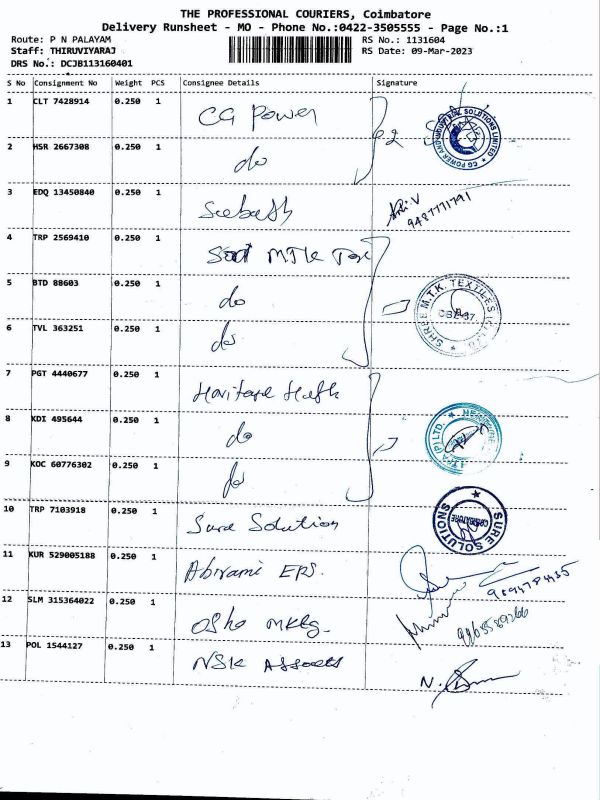 THE PROFESSIONAL COURIERS, Coimbatore
Delivery Runsheet - MO - Phone No.:0422-3505555 - Page No.:1
Route: P N PALAYAM RS No.: 1131604
Staff: THIRUVIYARAJ RS Date: 09-Mar-2023
DRS No.: DCJB113160401
S No Consignment No Weight PCS Consignee Details Signature
1 CLT 7428914 0.250 1 CG Power 2 CG POWER AND INDUSTRIAL SOLUTIONS LIMITED
2 HSR 2667308 0.250 1 do
3 EDQ 13450840 0.250 1 Subash 9487771791
4 TRP 2569410 0.250 1 MTK Tex
5 BTD 88603 0.250 1 do SHREE M.T.K. TEXTILES (P) LTD
6 TVL 363251 0.250 1 do
7 PGT 4440677 0.250 1
8 KDI 495644 0.250 1 do (P) LTD.
9 KOC 60776302 0.250 1 do
10 TRP 7103918 0.250 1 Sure Solution SURE SOLUTIONS COIMBATORE
11 KUR 529005188 0.250 1 Abirami EPS.
12 SLM 315364022 0.250 1 Osho Mktg. 9965589266
13 POL 1544127 0.250 1 NSK Assocets N.